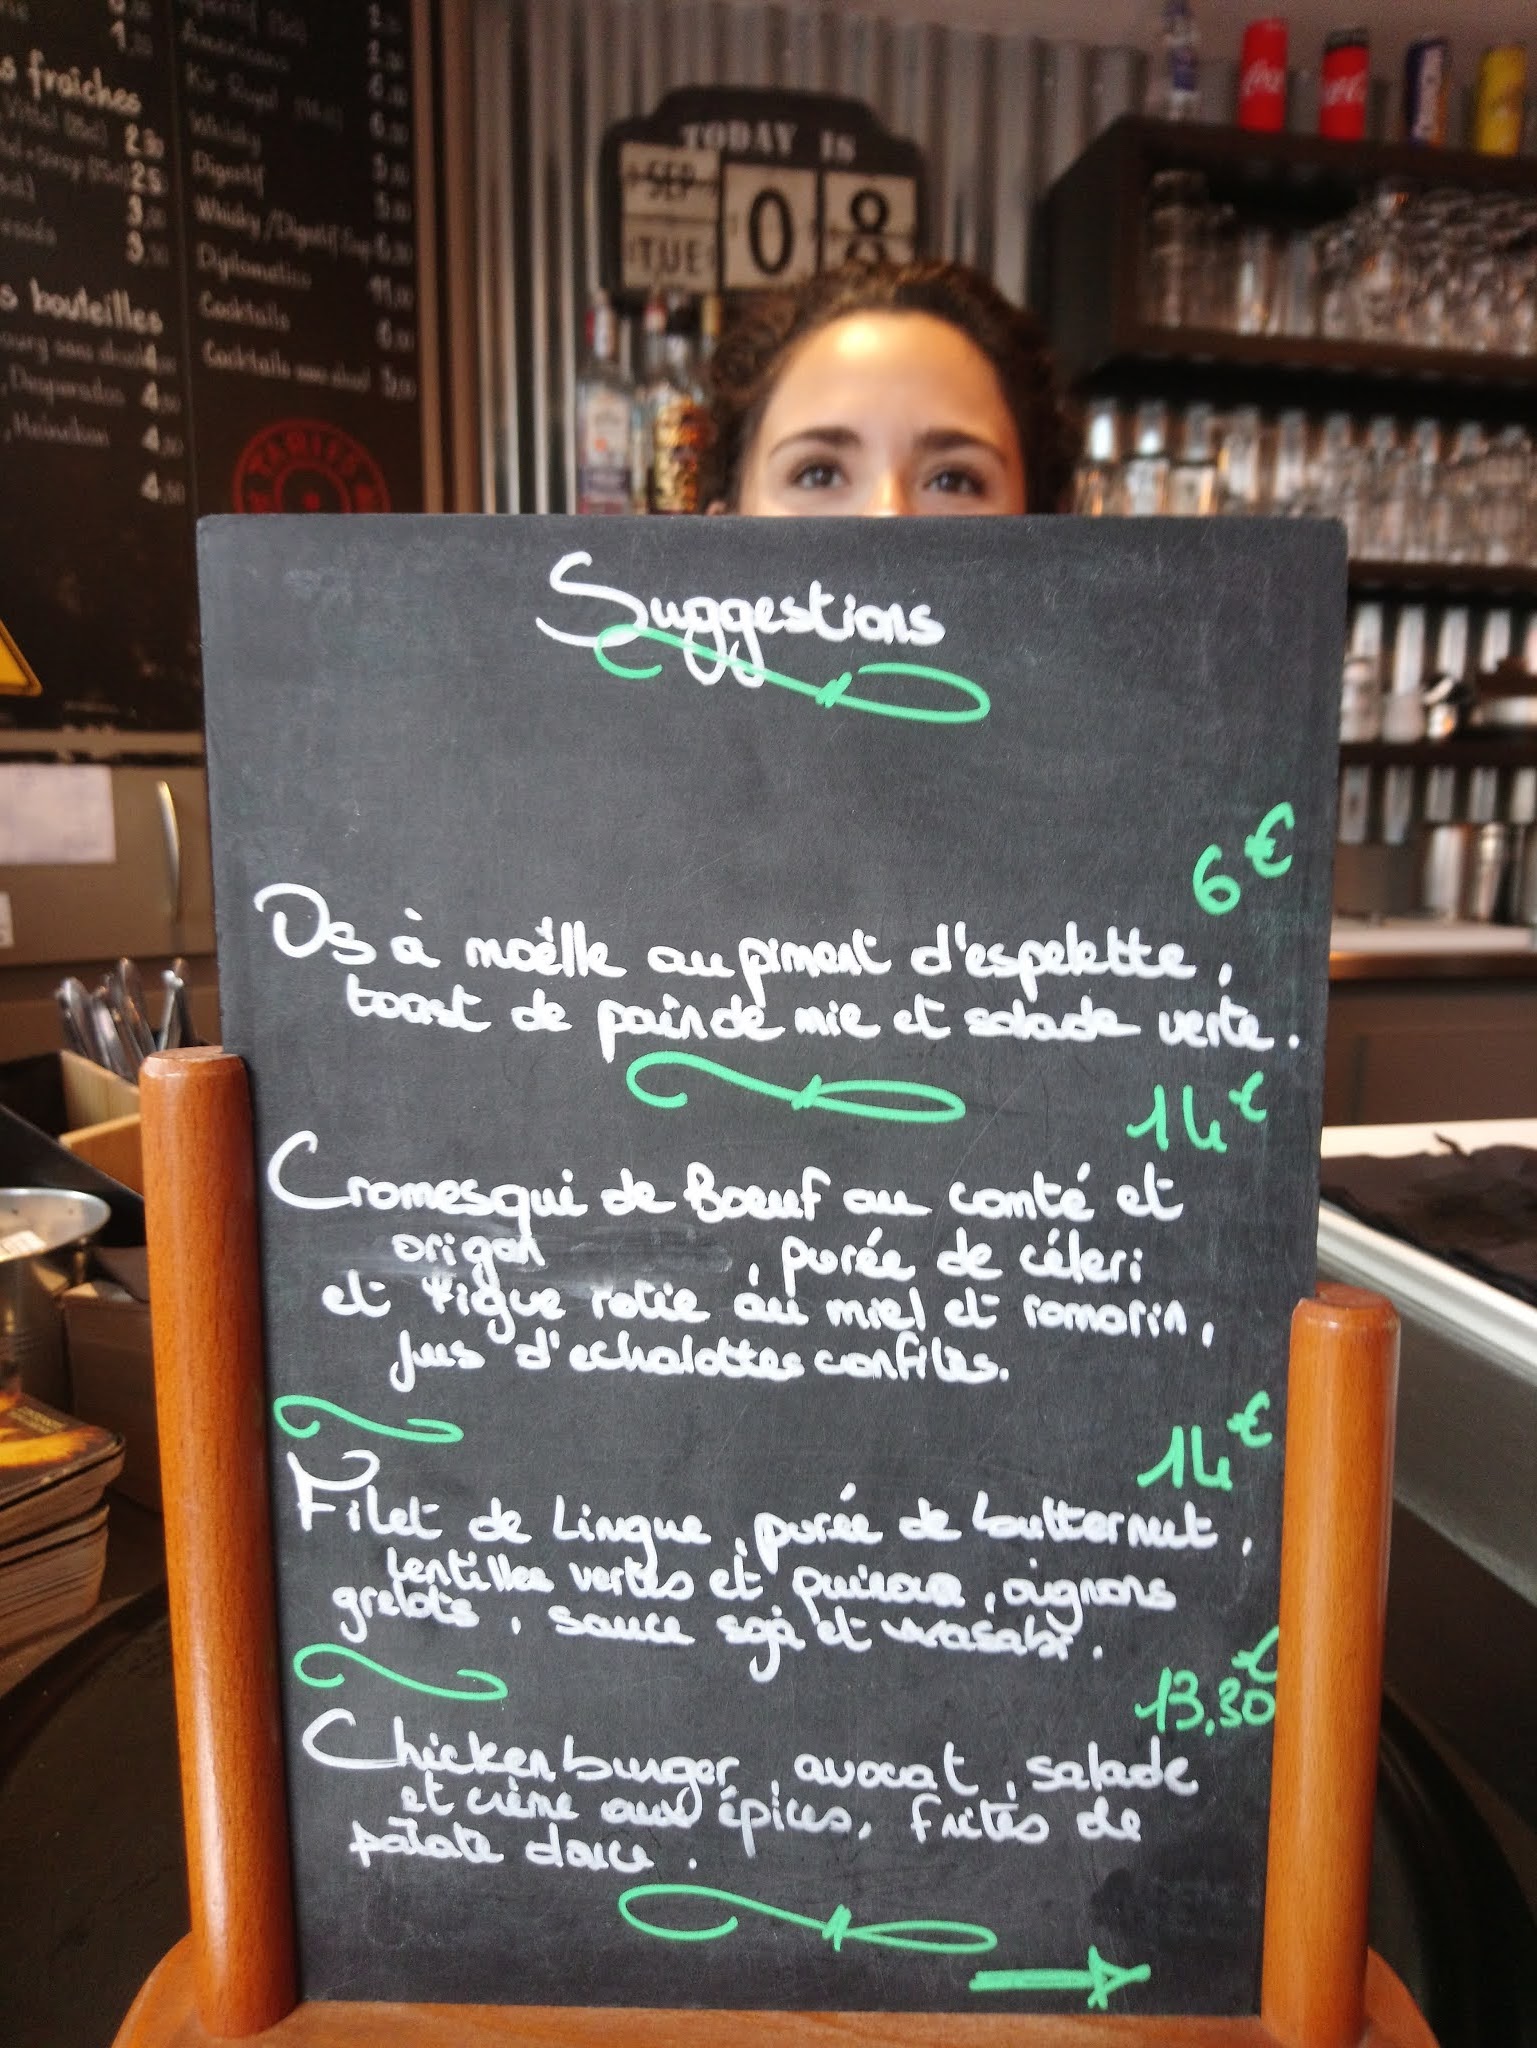 s fraîches
2.50
2.5
3.
3.
s bouteilles
sans alcool 4.
, Desperados 4.
, Heineken 4.50
4.50
Americano
Kir Royal
Whisky
Digestif
Whisky / Digestif Sup
Diplomatico 11.00
Cocktails 6.00
Cocktails sans alcool
TARIFS
TODAY IS
SEP
TUE
08
Suggestions
6€
Os à moëlle au piment d'espelette,
toast de pain de mie et salade verte.
14€
Cromesqui de Boeuf au comté et
origan , purée de céleri
et figue rotie au miel et romarin,
jus d'echalottes confites.
14€
Filet de Lingue, purée de butternut,
lentilles vertes et poireaux, oignons
grelots, sauce soja et wasabi.
13,30€
Chicken burger, avocat, salade
et crème aux épices, frites de
patate douce.